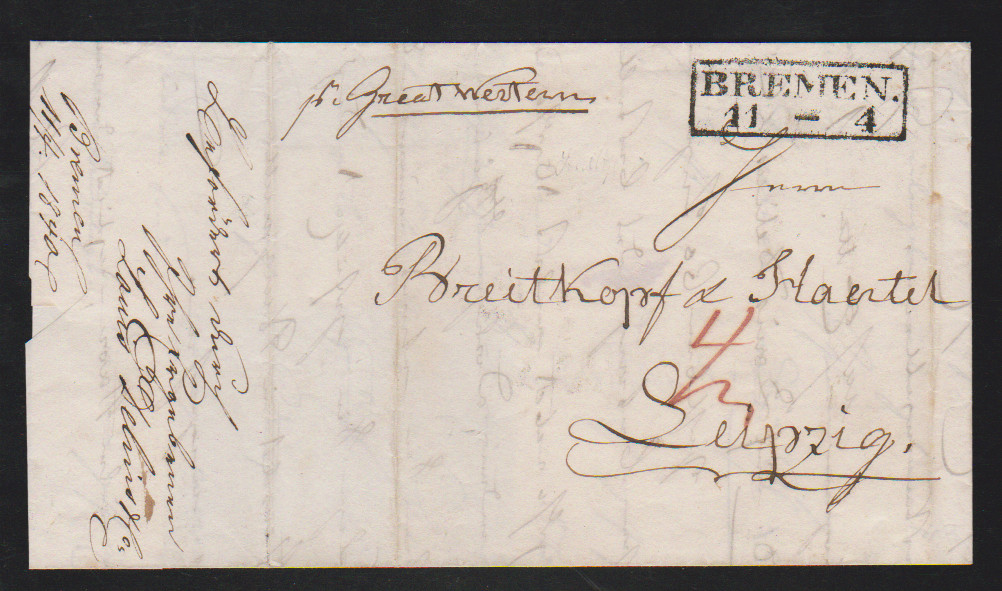 pr. Great Western
BREMEN.
11 - 4
Herrn
Breitkopf & Haertel
4
Leipzig.
Befördert durch
Louis Delius & Co
Bremen
11/4. 1840